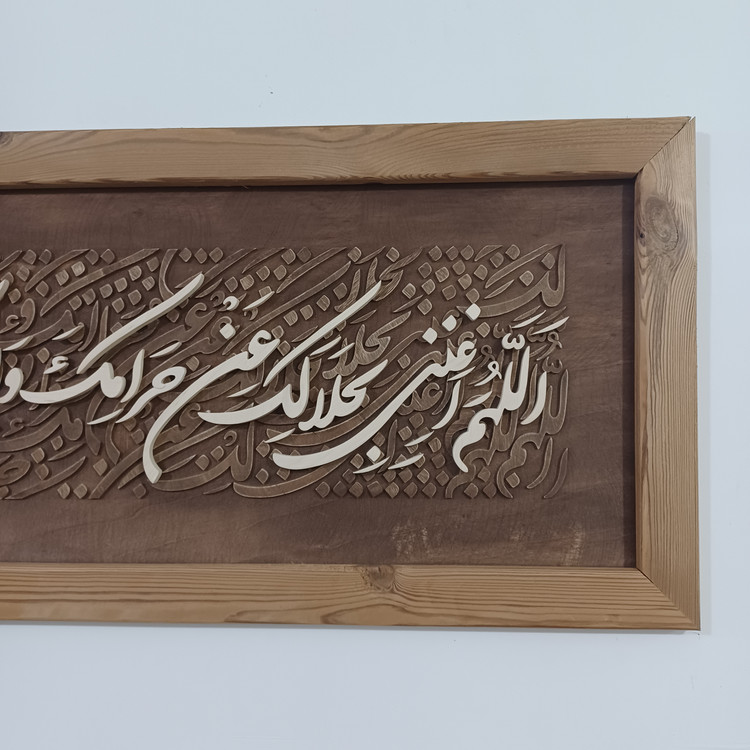 اَللّهُمَّ اغنِنی بِحَلالِکَ عَنْ حَرامِکَ